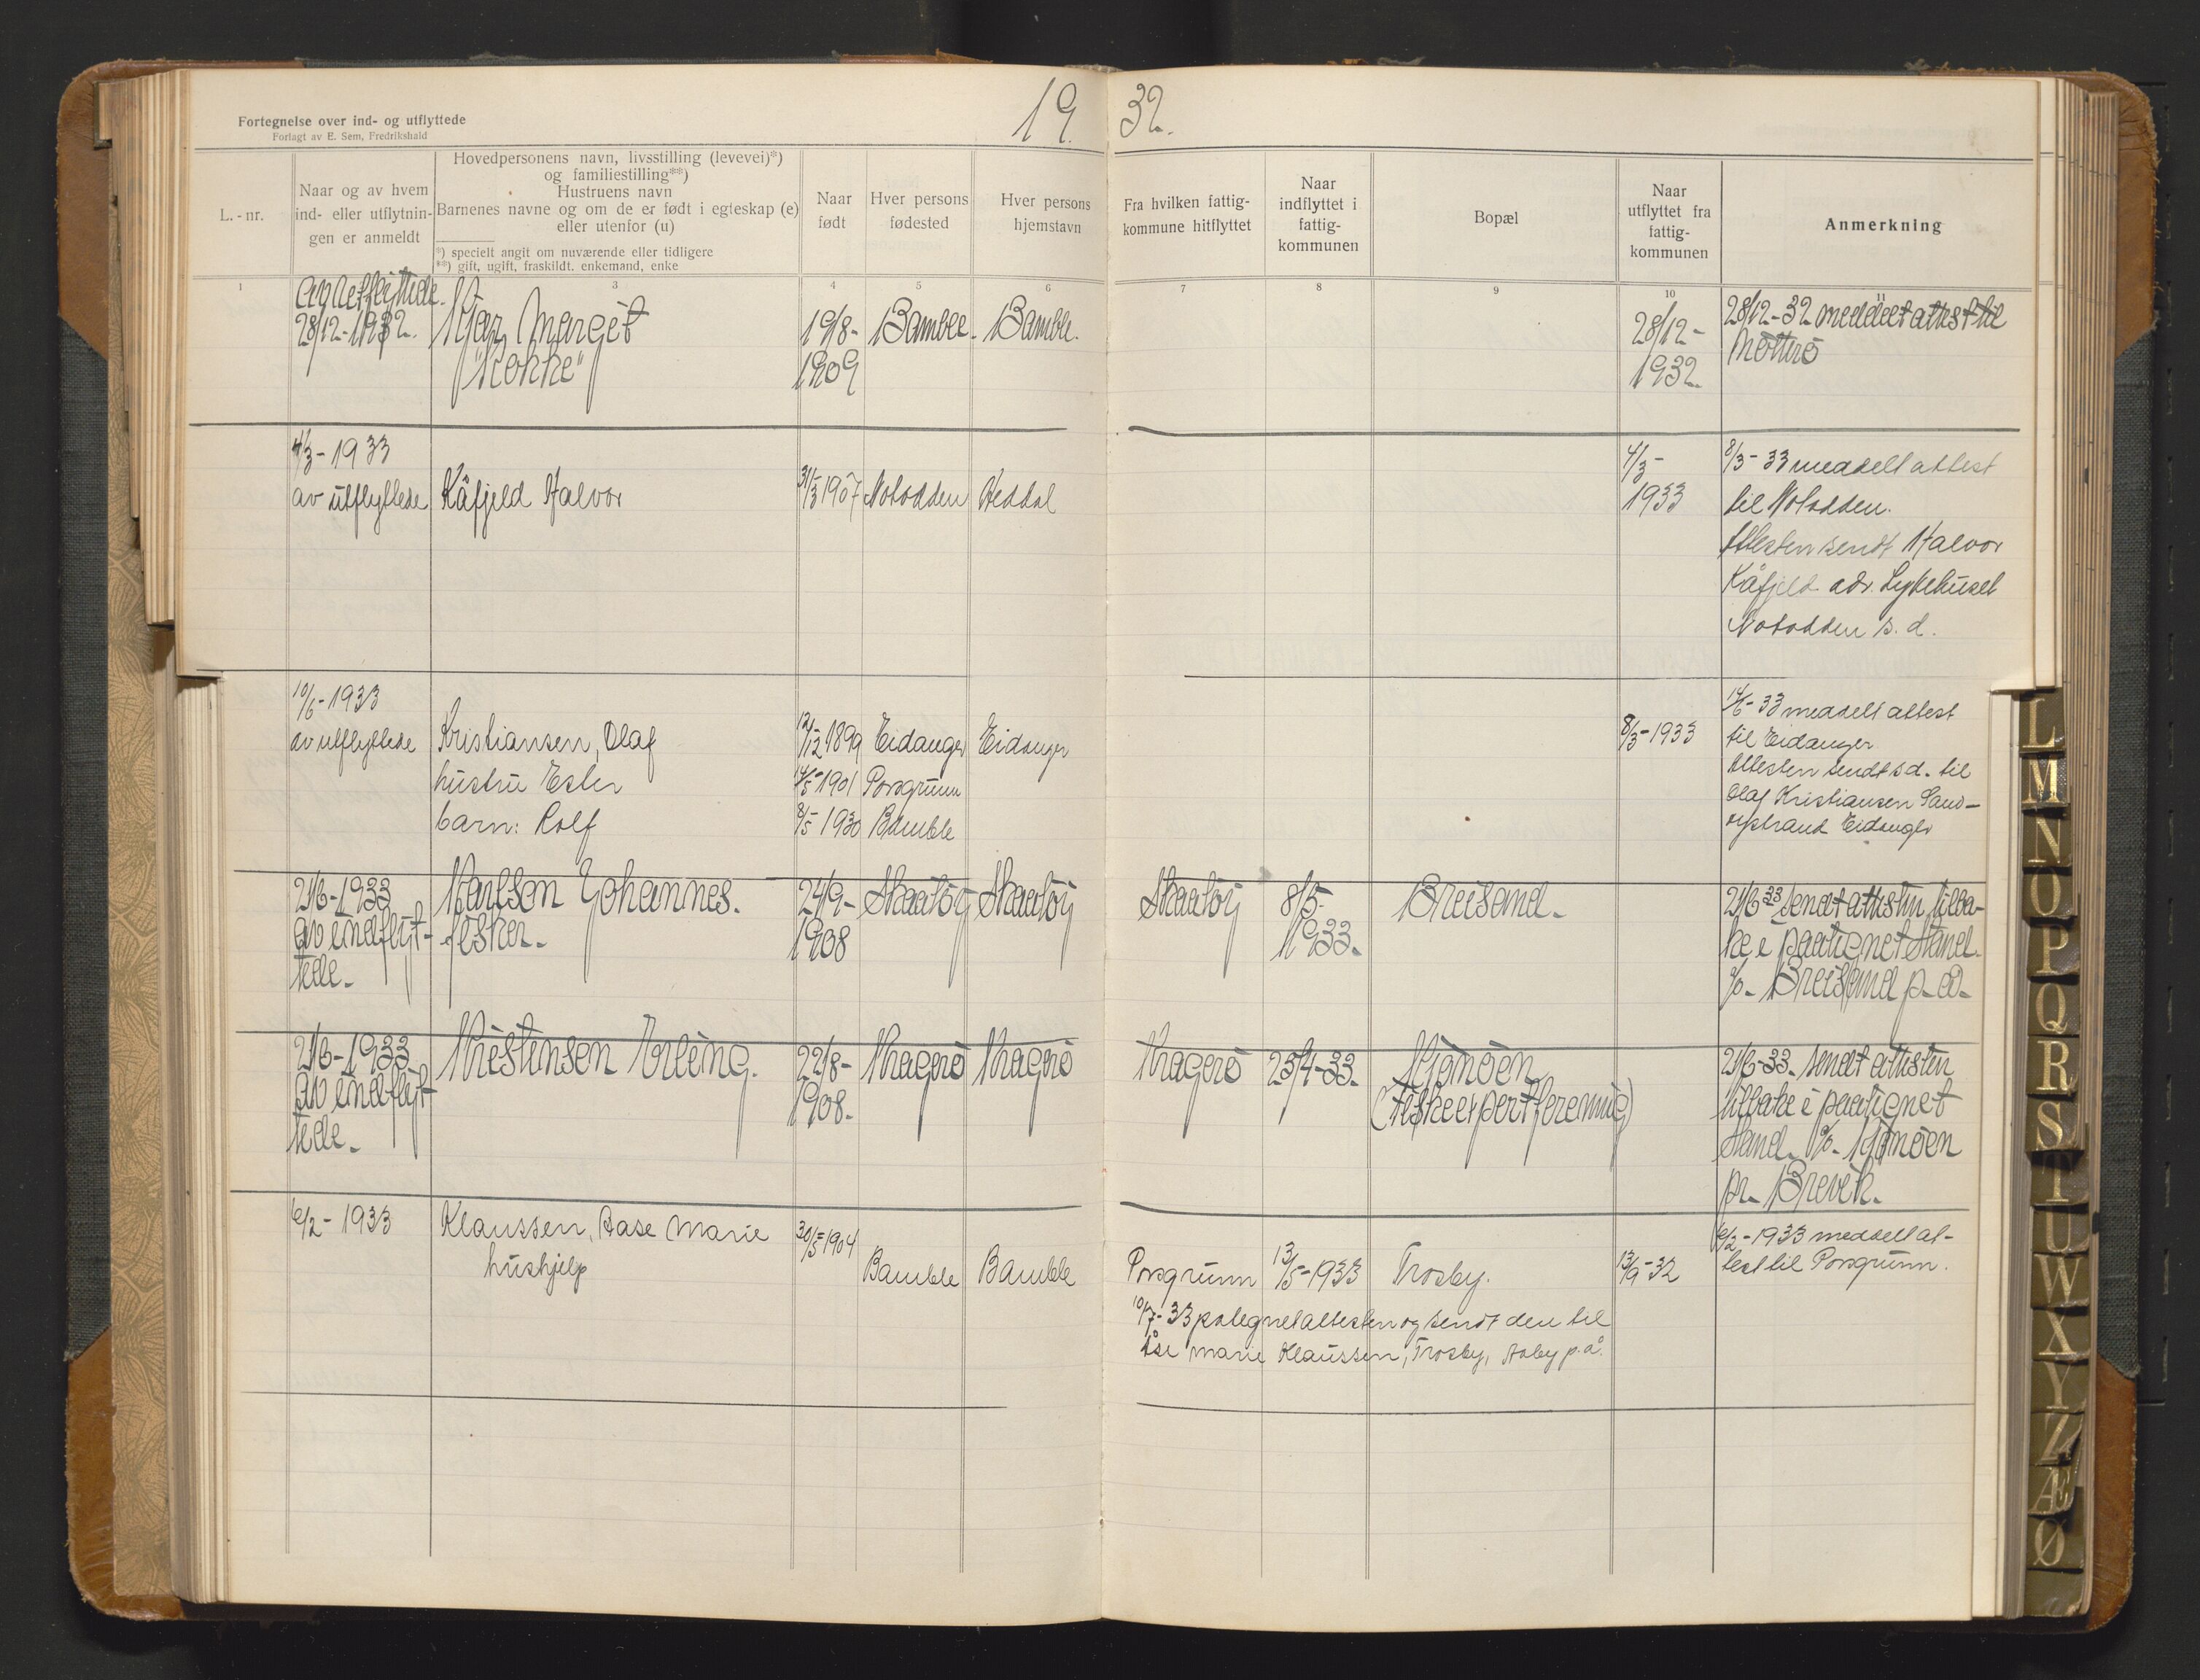 19 32.
Fortegnelse over ind- og utflyttede
Forlagt av E. Sem, Fredrikshald
L.-nr.
Naar og av hvem
ind- eller utflytnin-
gen er anmeldt
Hovedpersonens navn, livsstilling (levevei)*)
og familiestilling**)
Hustruens navn
Barnenes navne og om de er født i egteskap (e)
eller utenfor (u)
*) specielt angit om nuværende eller tidligere
**) gift, ugift, fraskildt, enkemand, enke
Naar
født
Hver persons
fødested
Hver persons
hjemstavn
Fra hvilken fattig-
kommune hitflyttet
Naar
indflyttet i
fattig-
kommunen
Bopæl
Naar
utflyttet fra
fattig-
kommunen
Anmerkning
1 3 4 5 6 7 8 9 10 11
av utflyttede.
28/12-1932.
Kjær, Margit
"Kokke"
19/8-
1909
Bamble.
Bamble.
28/12-
1932
28/12-32 meddelt attest til
Nötterö
4/3-1933
av utflyttede
Kåfjeld Halvor
31/3 1907
Notodden
Heddal
4/3-
1933
8/3-33 meddelt attest
til Notodden.
Attesten sendt Halvor
Kåfjeld adr. Sykehuset
Notodden s.d.
10/6-1933
av utflyttede
Kristiansen, Olaf
hustru Ester
barn: Rolf
12/12 1899
14/5-1901
8/5-1930
Eidanger
Porsgrunn
Bamble
Eidanger
8/3-1933
14/6-33 meddelt attest
til Eidanger
Attesten sendt s.d. til
Olaf Kristiansen Sand-
øystrand Eidanger
21/6-1933
av indflyt-
tede.
Karlson Johannes.
fisker.
24/9-
1908
Skaatöy
Skaatöy
Skaatöy
8/5.
1933.
Breisand.
21/6-33 sendt attesten tilba-
ke i paategnet stand.
c/o. Breisand p.å.
21/6-1933
av indflyt-
tede.
Kristensen Erling.
22/8-
1908.
Kragerö
Kragerö
Kragerö
25/4-33.
Kjönöen
(Fiskeexportforening)
21/6-33. sendt attesten
tilbake i paategnet
stand. c/o. Kjönöen
pr. Brevik.
6/2-1933
Klaussen, Aase Marie
hushjelp
30/5-1904
Bamble
Bamble
Porsgrunn
13/5-1933
Trosby.
13/9-32
6/2-1933 meddelt at-
test til Porsgrunn.
10/7-33 påtegnet attesten og sendt den til
Åse Marie Klaussen, Trosby, Aaby p.å.
L
M
N
O
P
Q
R
S
T
U
W
X
Y
Z
Æ
Ø